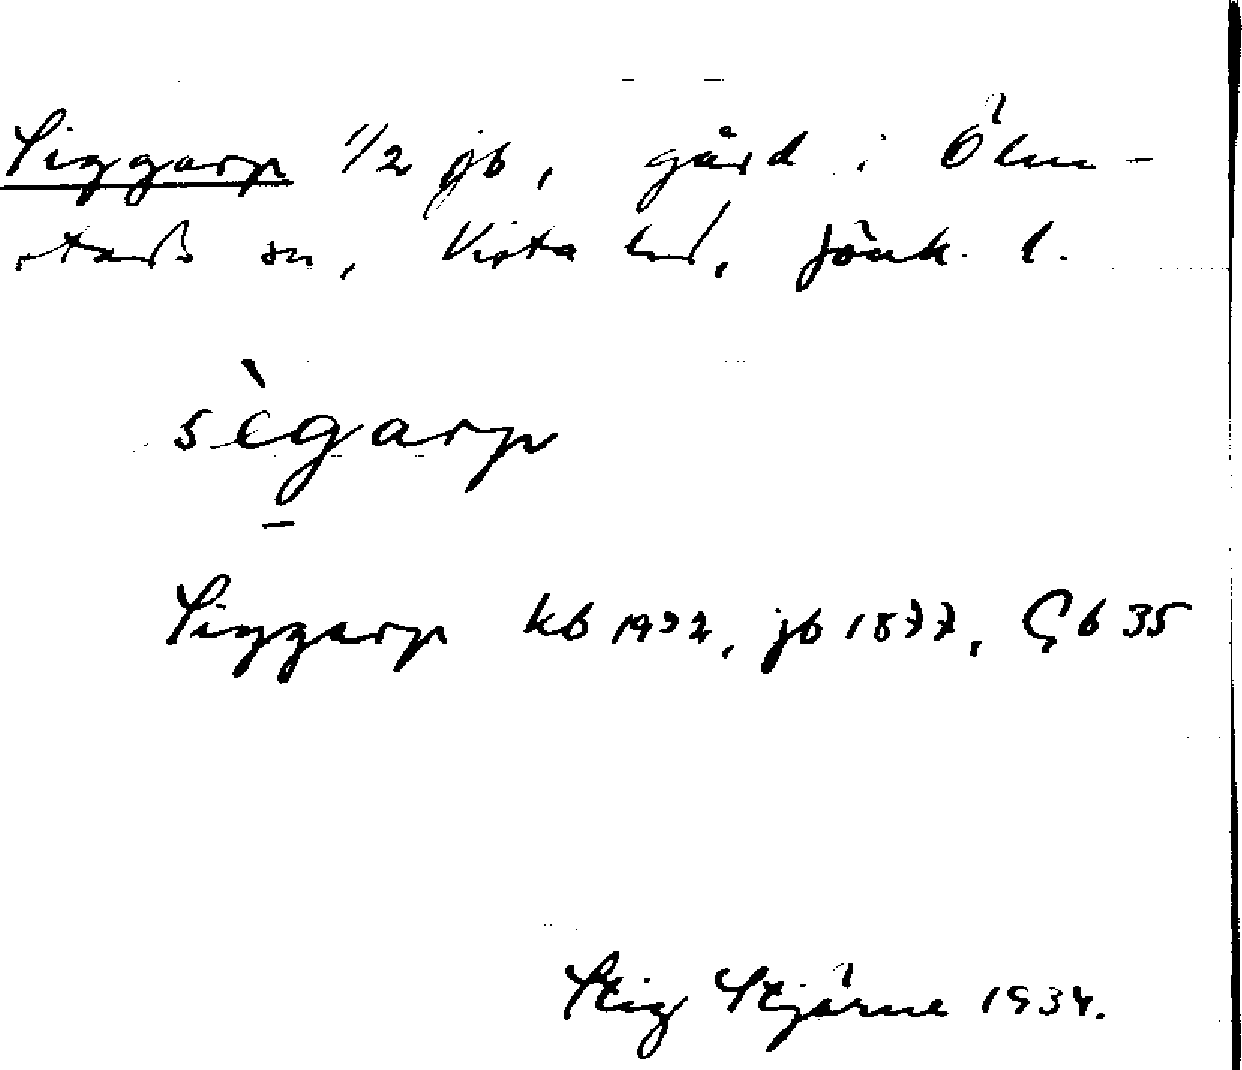 Siggarp 1/2 jb, gård i Ölm-
stads sn, Vista hd, Jönk. l.
sègarp
Siggarp kb 1932, jb 1877, Gb 35
Stig Stjärne 1934.